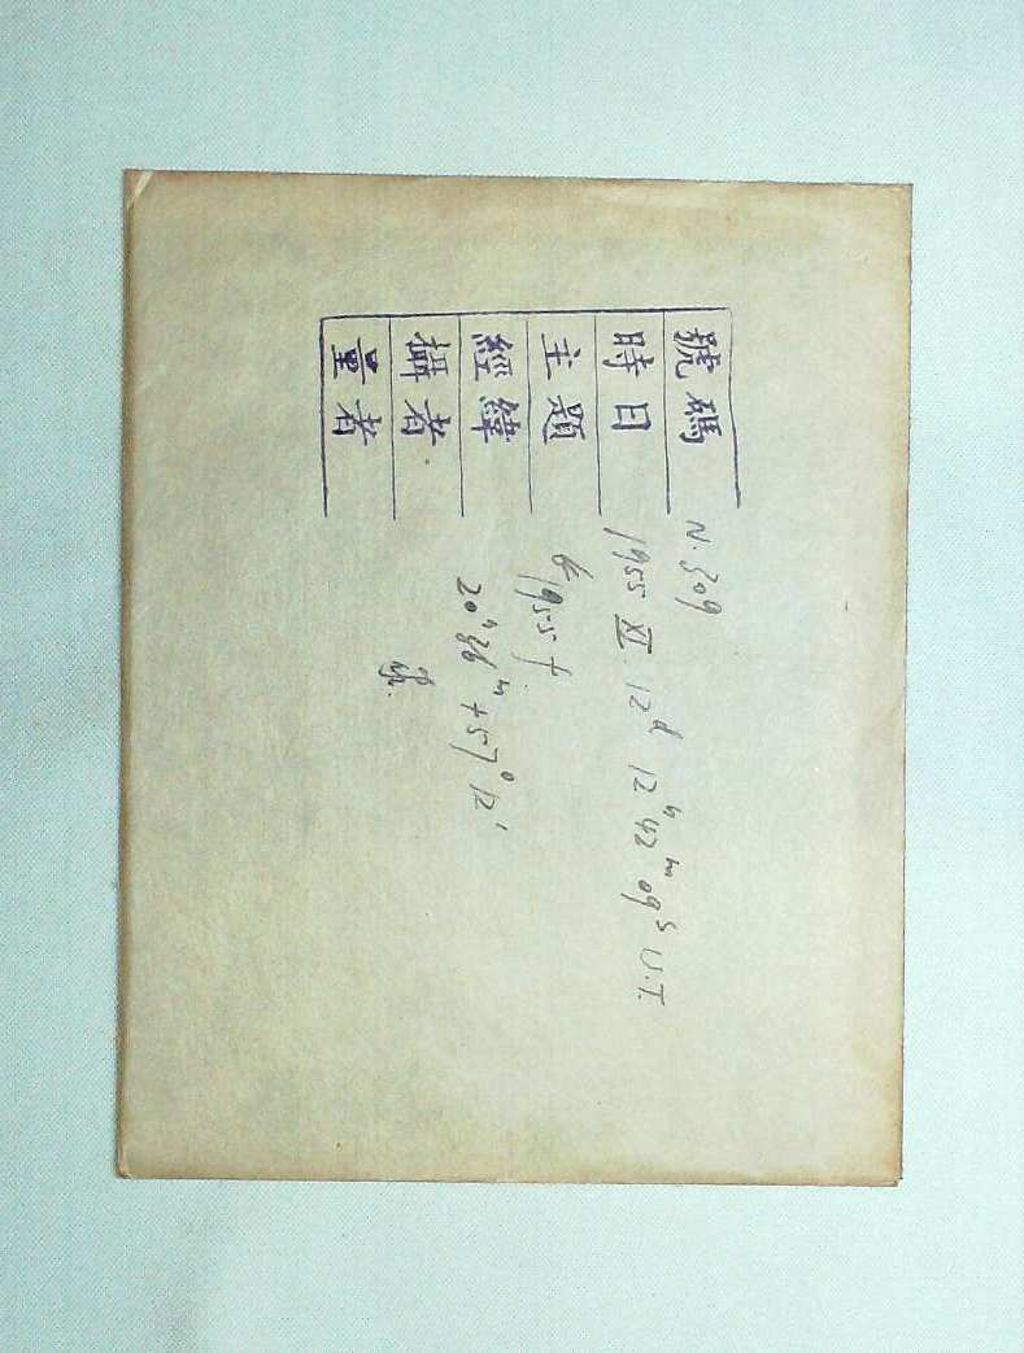 號碼 N. 309
時日 1955 XI. 12d 12h 42m 09s U.T.
主題 1955 f
經緯 20h 36m +57° 12'
攝者
量者